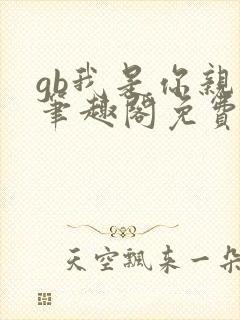 gb我是你親
筆趣閣免費
天空飄來一朵